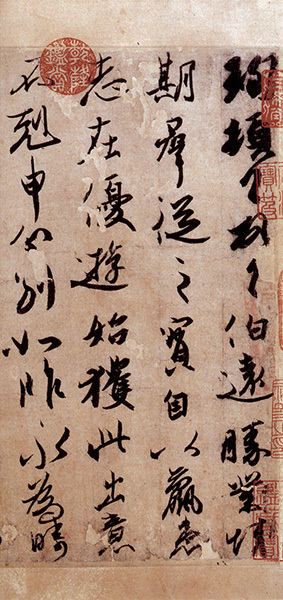 珣頓首頓首伯遠勝業情
期羣從之寶自以羸患
志在優遊始獲此出意
不剋申分別如昨永為疇